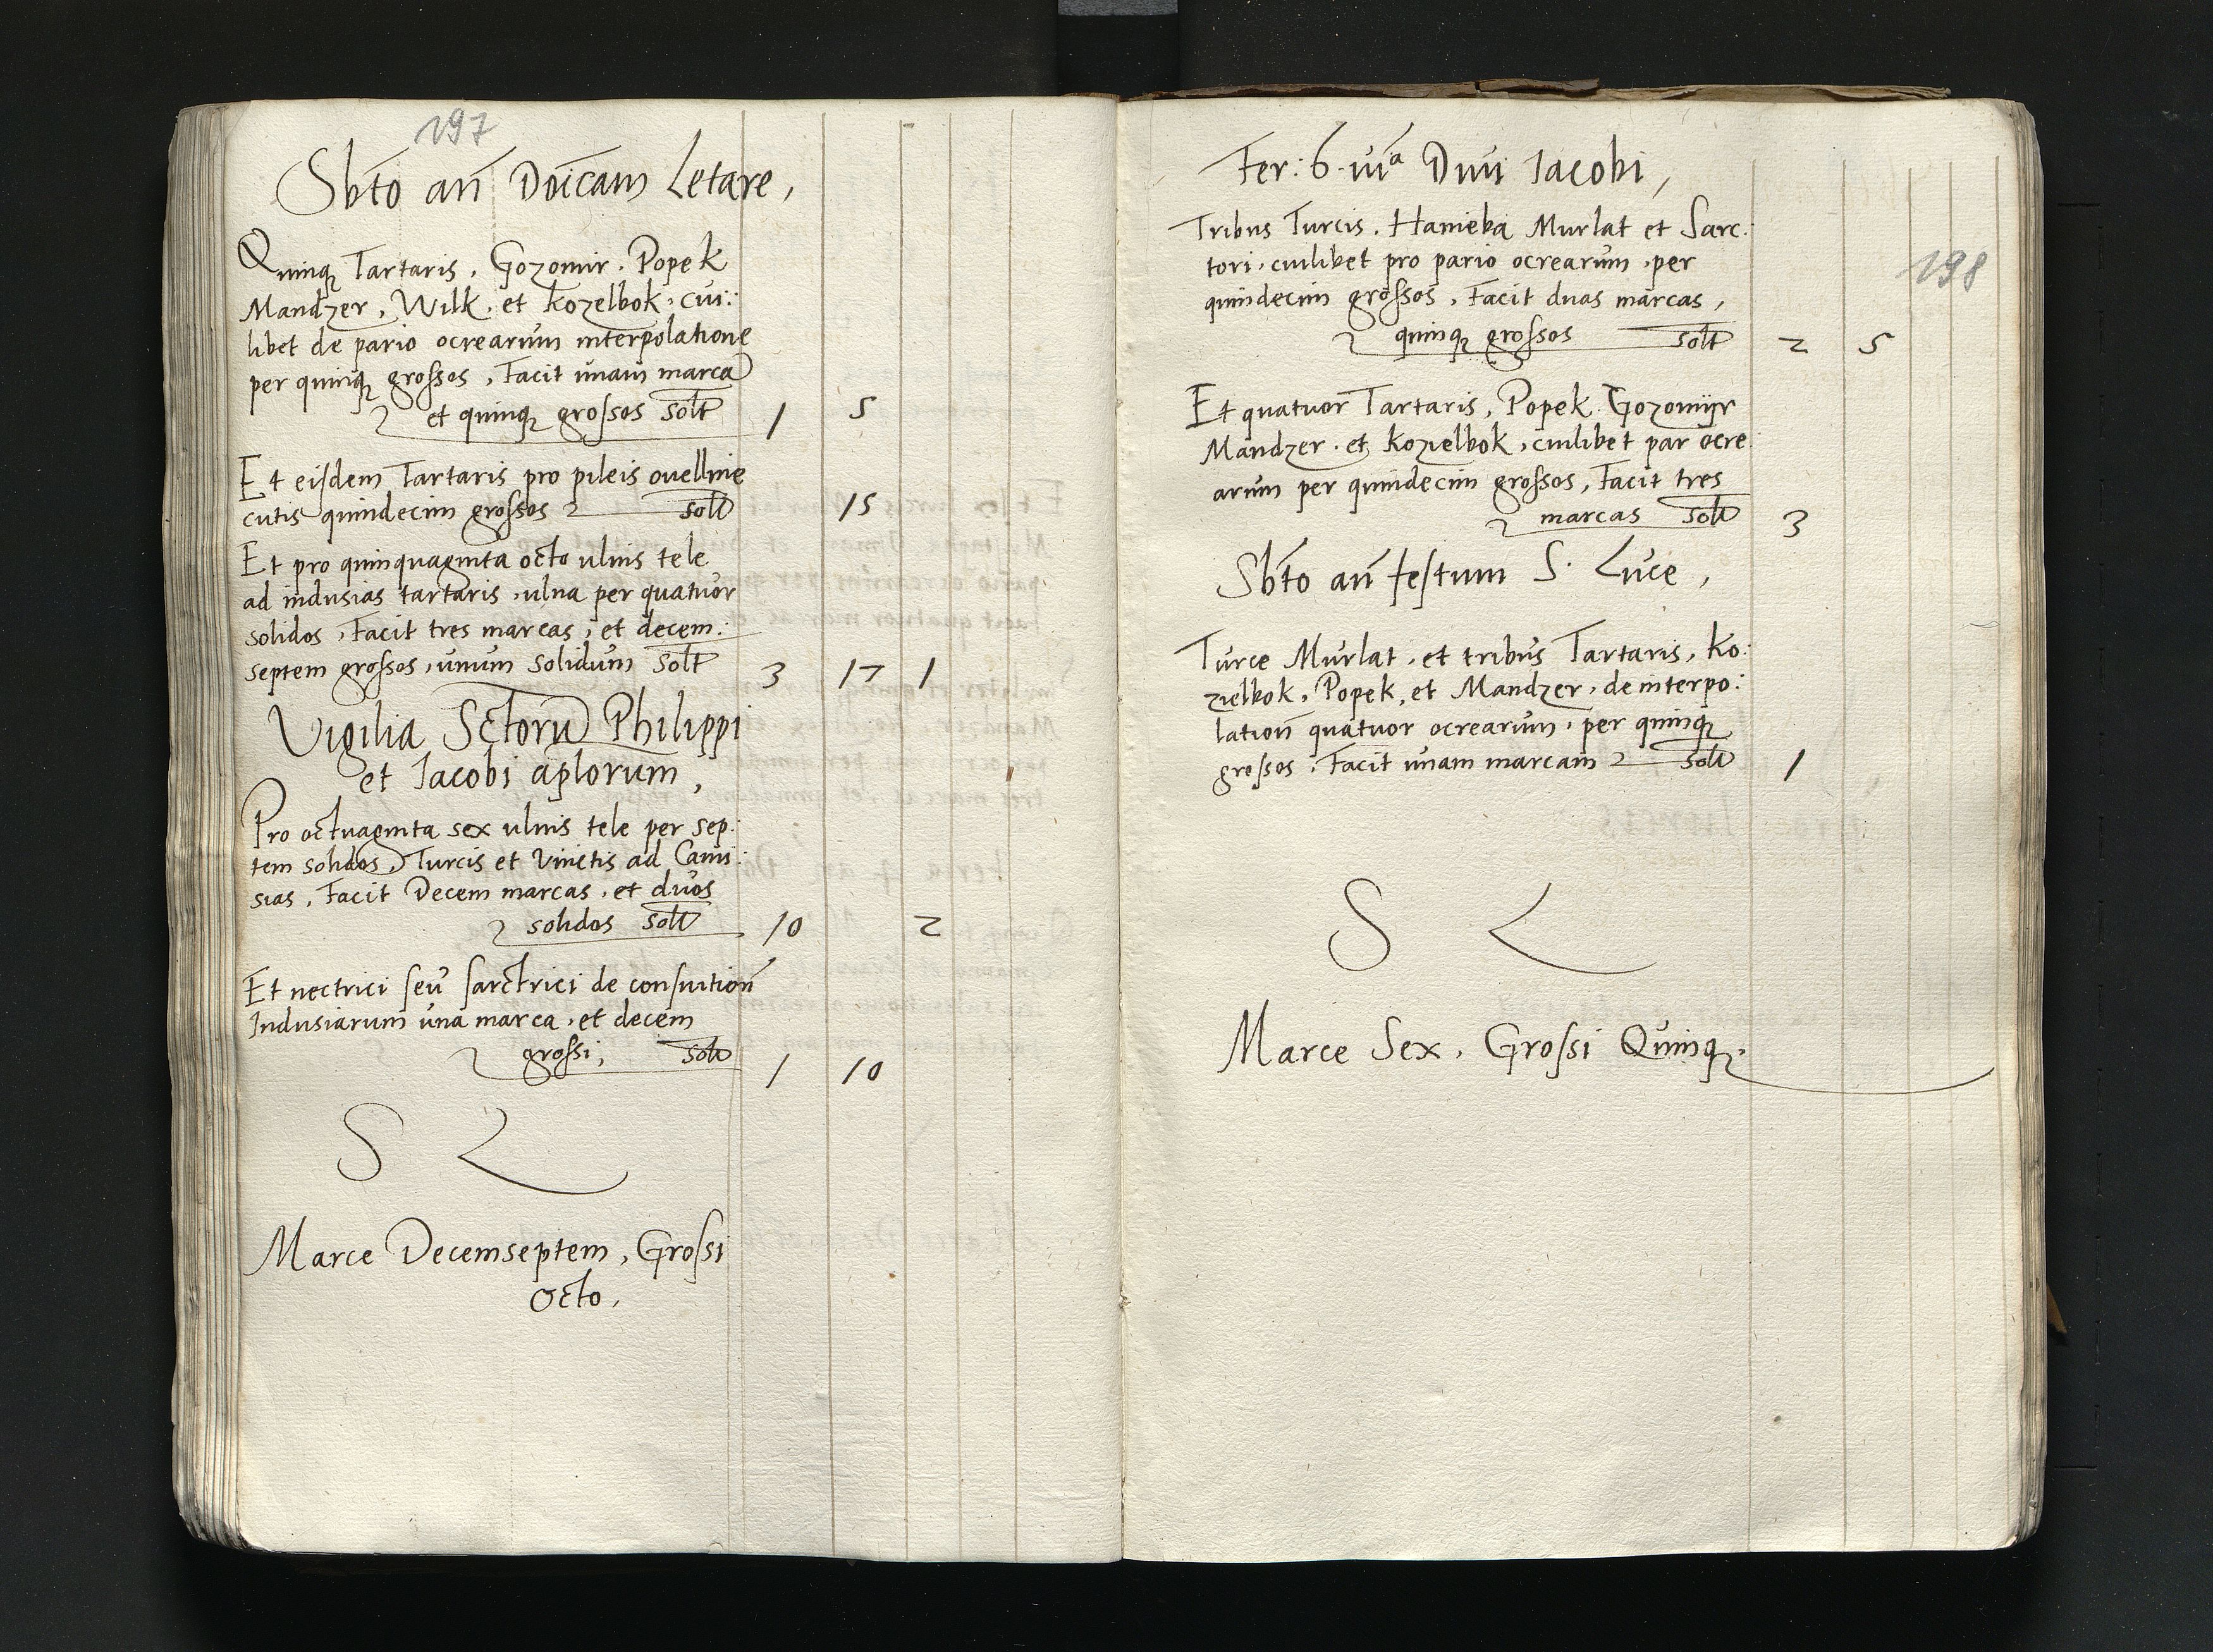 197
Sbto an Doicam Letare,
Quinq Tartaris, Gozomir, Popek
Mandzer, Wilk, et Kozelbok, cui:
libet de pario ocrearum interpolatione
per quinq grossos, Facit unam marca
et quinq grossos solt 1 5
Et eisdem Tartaris pro pileis ouellinie
cutis quindecim grossos solt 15
Et pro quinquaginta octo ulnis tele
ad indusias tartaris, ulna per quatuor
solidos, Facit tres marcas, et decem:
septem grossos, unum solidum solt 3 17 1
Vigilia Sctoru Philippi
et Iacobi aplorum,
Pro octuaginta sex ulnis tele per sep:
tem solidos, Turcis et Vinctis ad Cami:
sias, Facit Decem marcas, et duos
solidos solt 10 2
Et nectrici seu sarctrici de consuition
Indusiarum una marca, et decem
grossi, solt 1 10
S L
Marce Decemseptem, Grossi
Octo,
Fer: 6 via Divi Iacobi,
198
Tribus Turcis, Hanieka Murlat et Sarc:
tori, cuilibet pro pario ocrearum, per
quindecim grossos, Facit duas marcas,
quinq grossos solt 2 5
Et quatuor Tartaris, Popek, Gozomijr
Mandzer, et Kozielbok, cuilibet par ocre
arum per quindecim grossos, Facit tres
marcas solt 3
Sbto an festum S. Luce,
Turce Murlat, et tribus Tartaris, Ko:
zielbok, Popek, et Mandzer, de interpo:
lation quatuor ocrearum, per quinq
grossos, Facit unam marcam solt 1
S L
Marce Sex, Grossi Quinq,